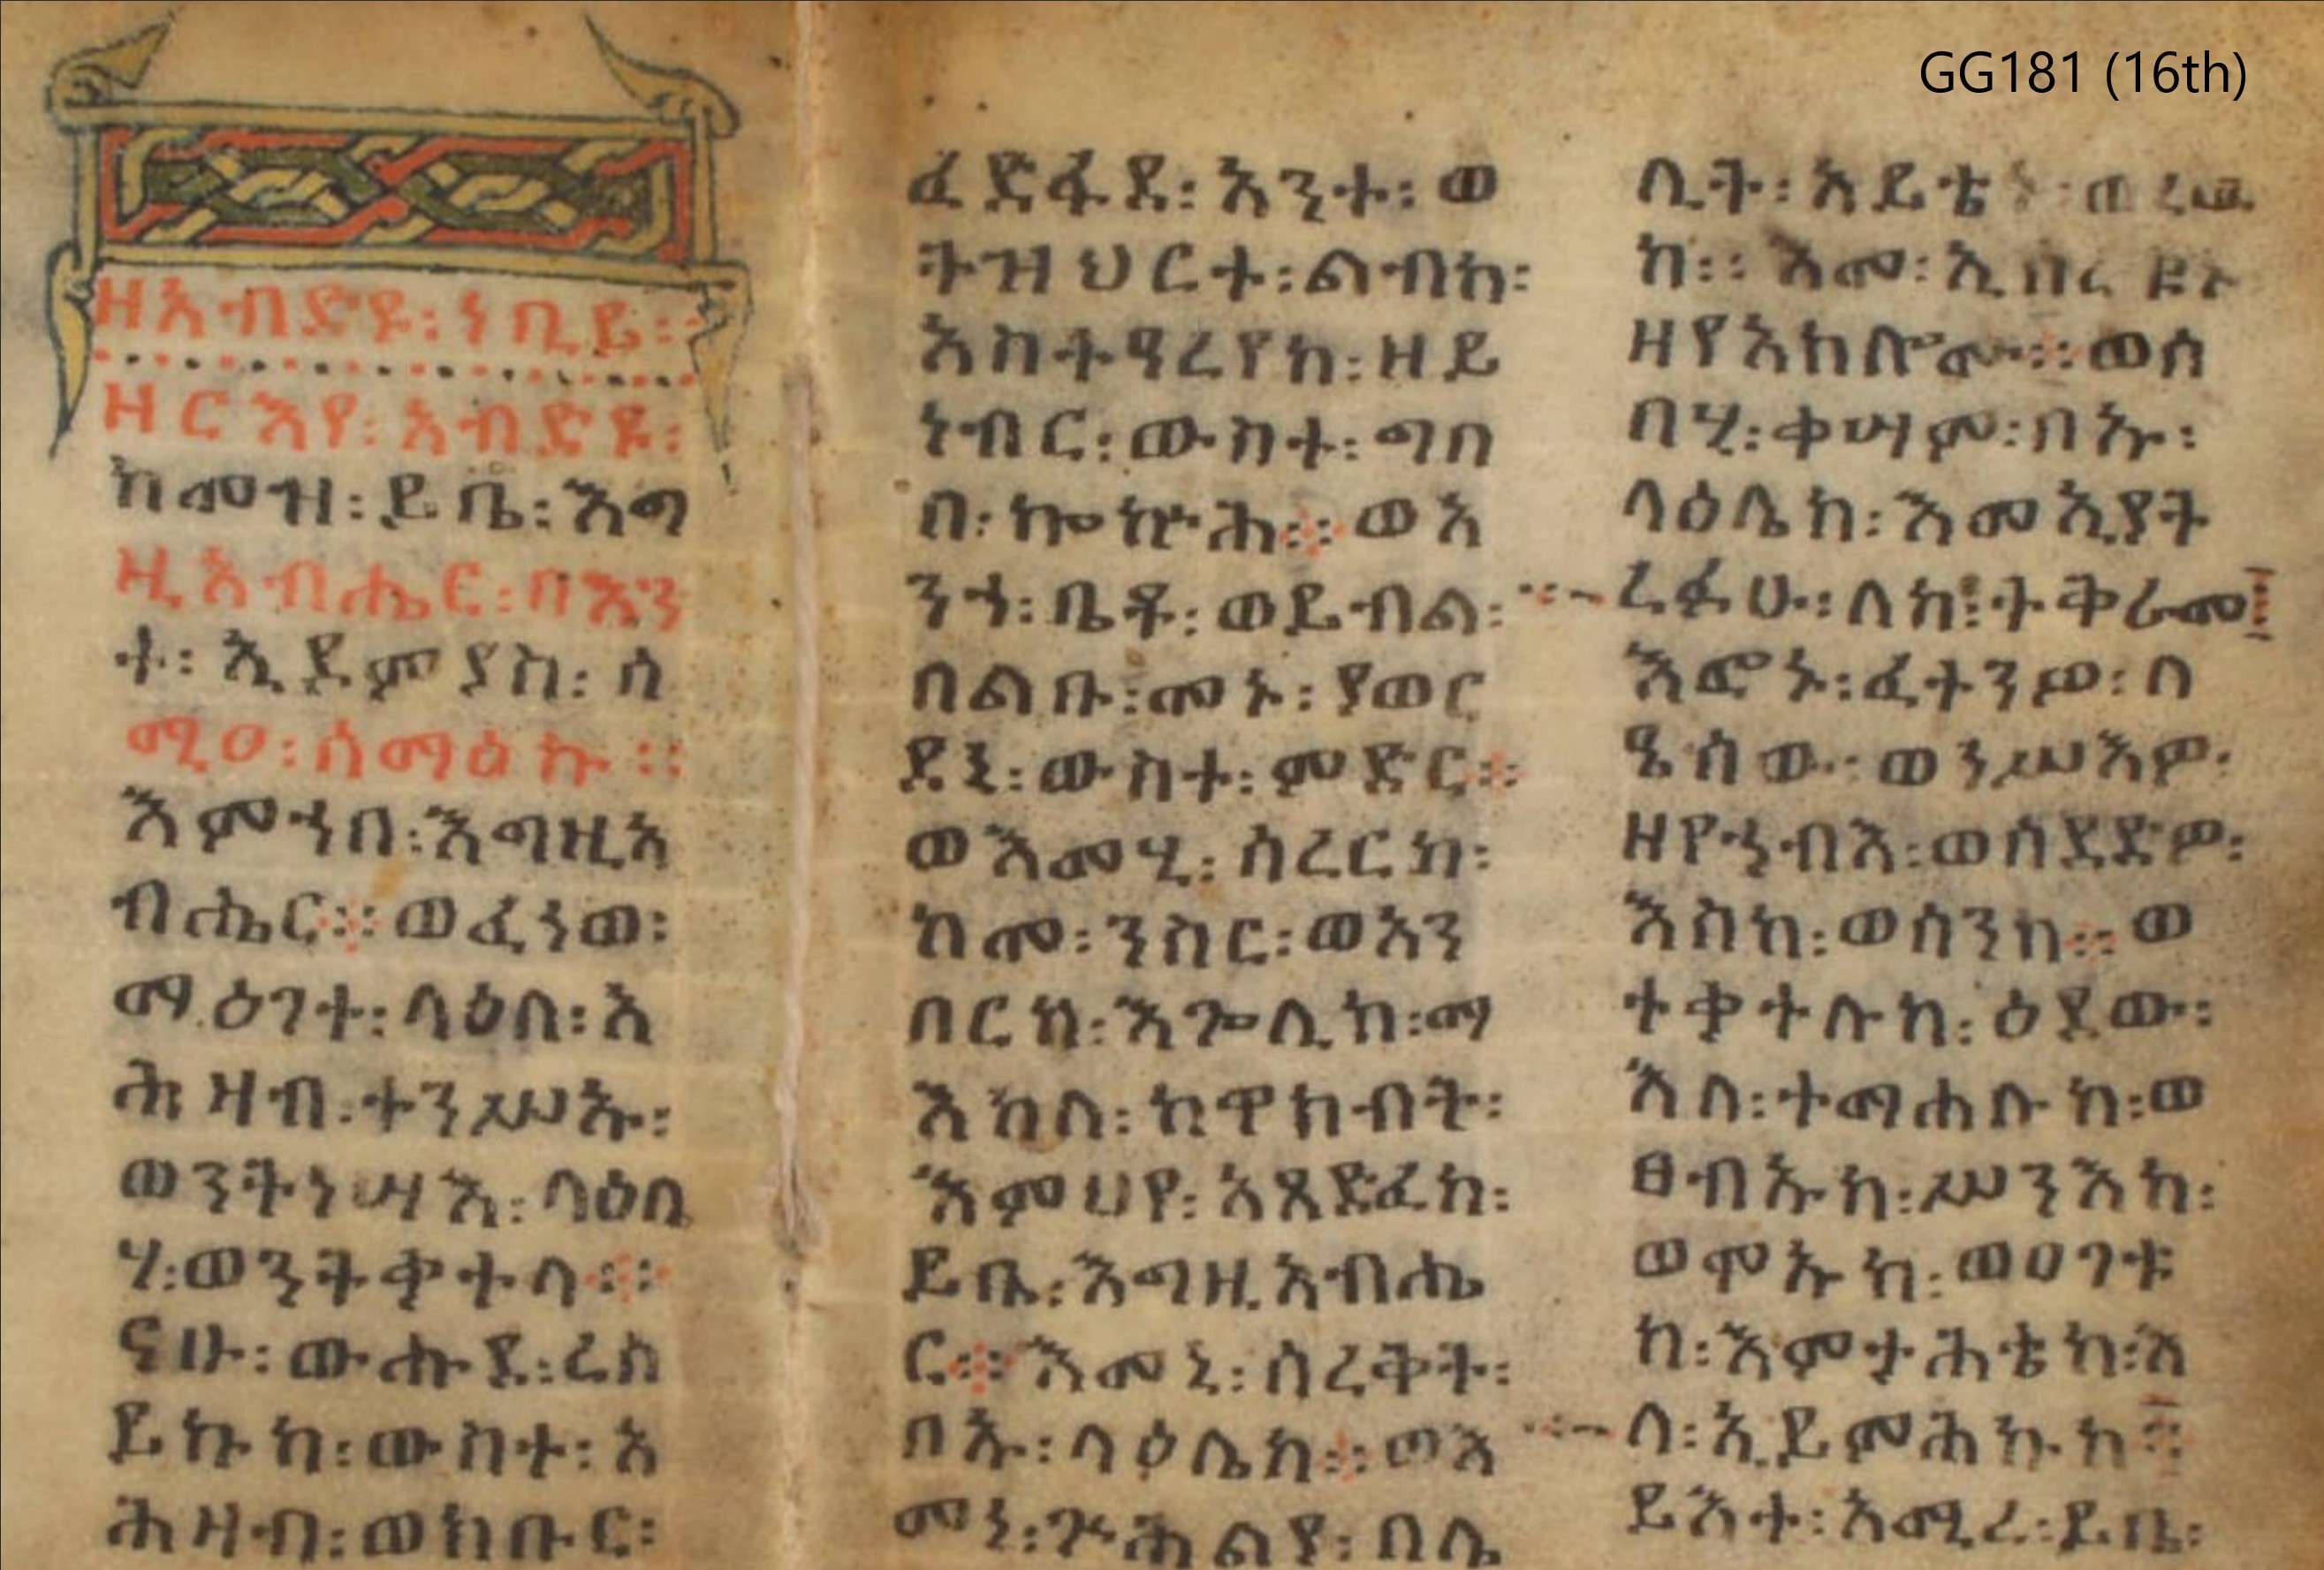 GG181 (16th)
ዘአብድዩ፡ነቢይ።
ዘርእየ፡አብድዩ፡
ከመዝ፡ይቤ፡እግ
ዚአብሔር፡በእን
ተ፡ኢዶምያስ፡ሰ
ሚዐ፡ሰማዕኩ።
እምኀበ፡እግዚአ
ብሔር።ወፈነወ፡
ማዕገተ፡ላዕለ፡አ
ሕዛብ፡ተንሥኡ፡
ወንትነሣእ፡ላዕሌ
ሃ፡ወንትቃተላ።
ናሁ፡ውሑደ፡ረሰ
ይኩከ፡ውስተ፡አ
ሕዛብ፡ወክቡር፡
ፈድፋደ፡አንተ፡ወ
ትዝህርተ፡ልብከ፡
አስተዓረየከ፡ዘይ
ነብር፡ውስተ፡ግበ
በ፡ኰኵሕ።ወአ
ንኀ፡ቤቶ፡ወይብል፡
በልቡ፡መኑ፡ያወር
ደኒ፡ውስተ፡ምድር።
ወእመሂ፡ሰረርከ፡
ከመ፡ንስር፡ወአን
በርከ፡እጐሊከ፡ማ
እከለ፡ከዋክብት፡
እምህየ፡አጸድፈከ፡
ይቤ፡እግዚአብሔ
ር።እመኒ፡ሰረቅት፡
በኡ፡ላዕሌከ።ወእ
መኒ፡ጕሕልያ፡በሌ
ሊት፡አይቴ
ከ።እመ፡ኢ
ዘየአክሎሙ።ወሰ
በሂ፡ቀሣም፡በኡ፡
ላዕሌከ፡እመኢያት
ረፉሁ፡ለከ፡ተቅራመ
እፎኑ፡ፈተንዎ፡ለ
ዔሳው፡ወንሥእዎ፡
ዘየኀብእ፡ወሰደድዎ፡
እስከ፡ወሰንከ።ወ
ተቃተሉከ፡ዕደው፡
እለ፡ተማሐሉከ፡ወ
ፀብኡከ፡ሥንእከ፡
ወሞኡከ፡ወዐገቱ
ከ፡እምታሕቴከ፡እ
ለ፡ኢይምሕኩከ።
ይእተ፡አሚረ፡ይቤ፡